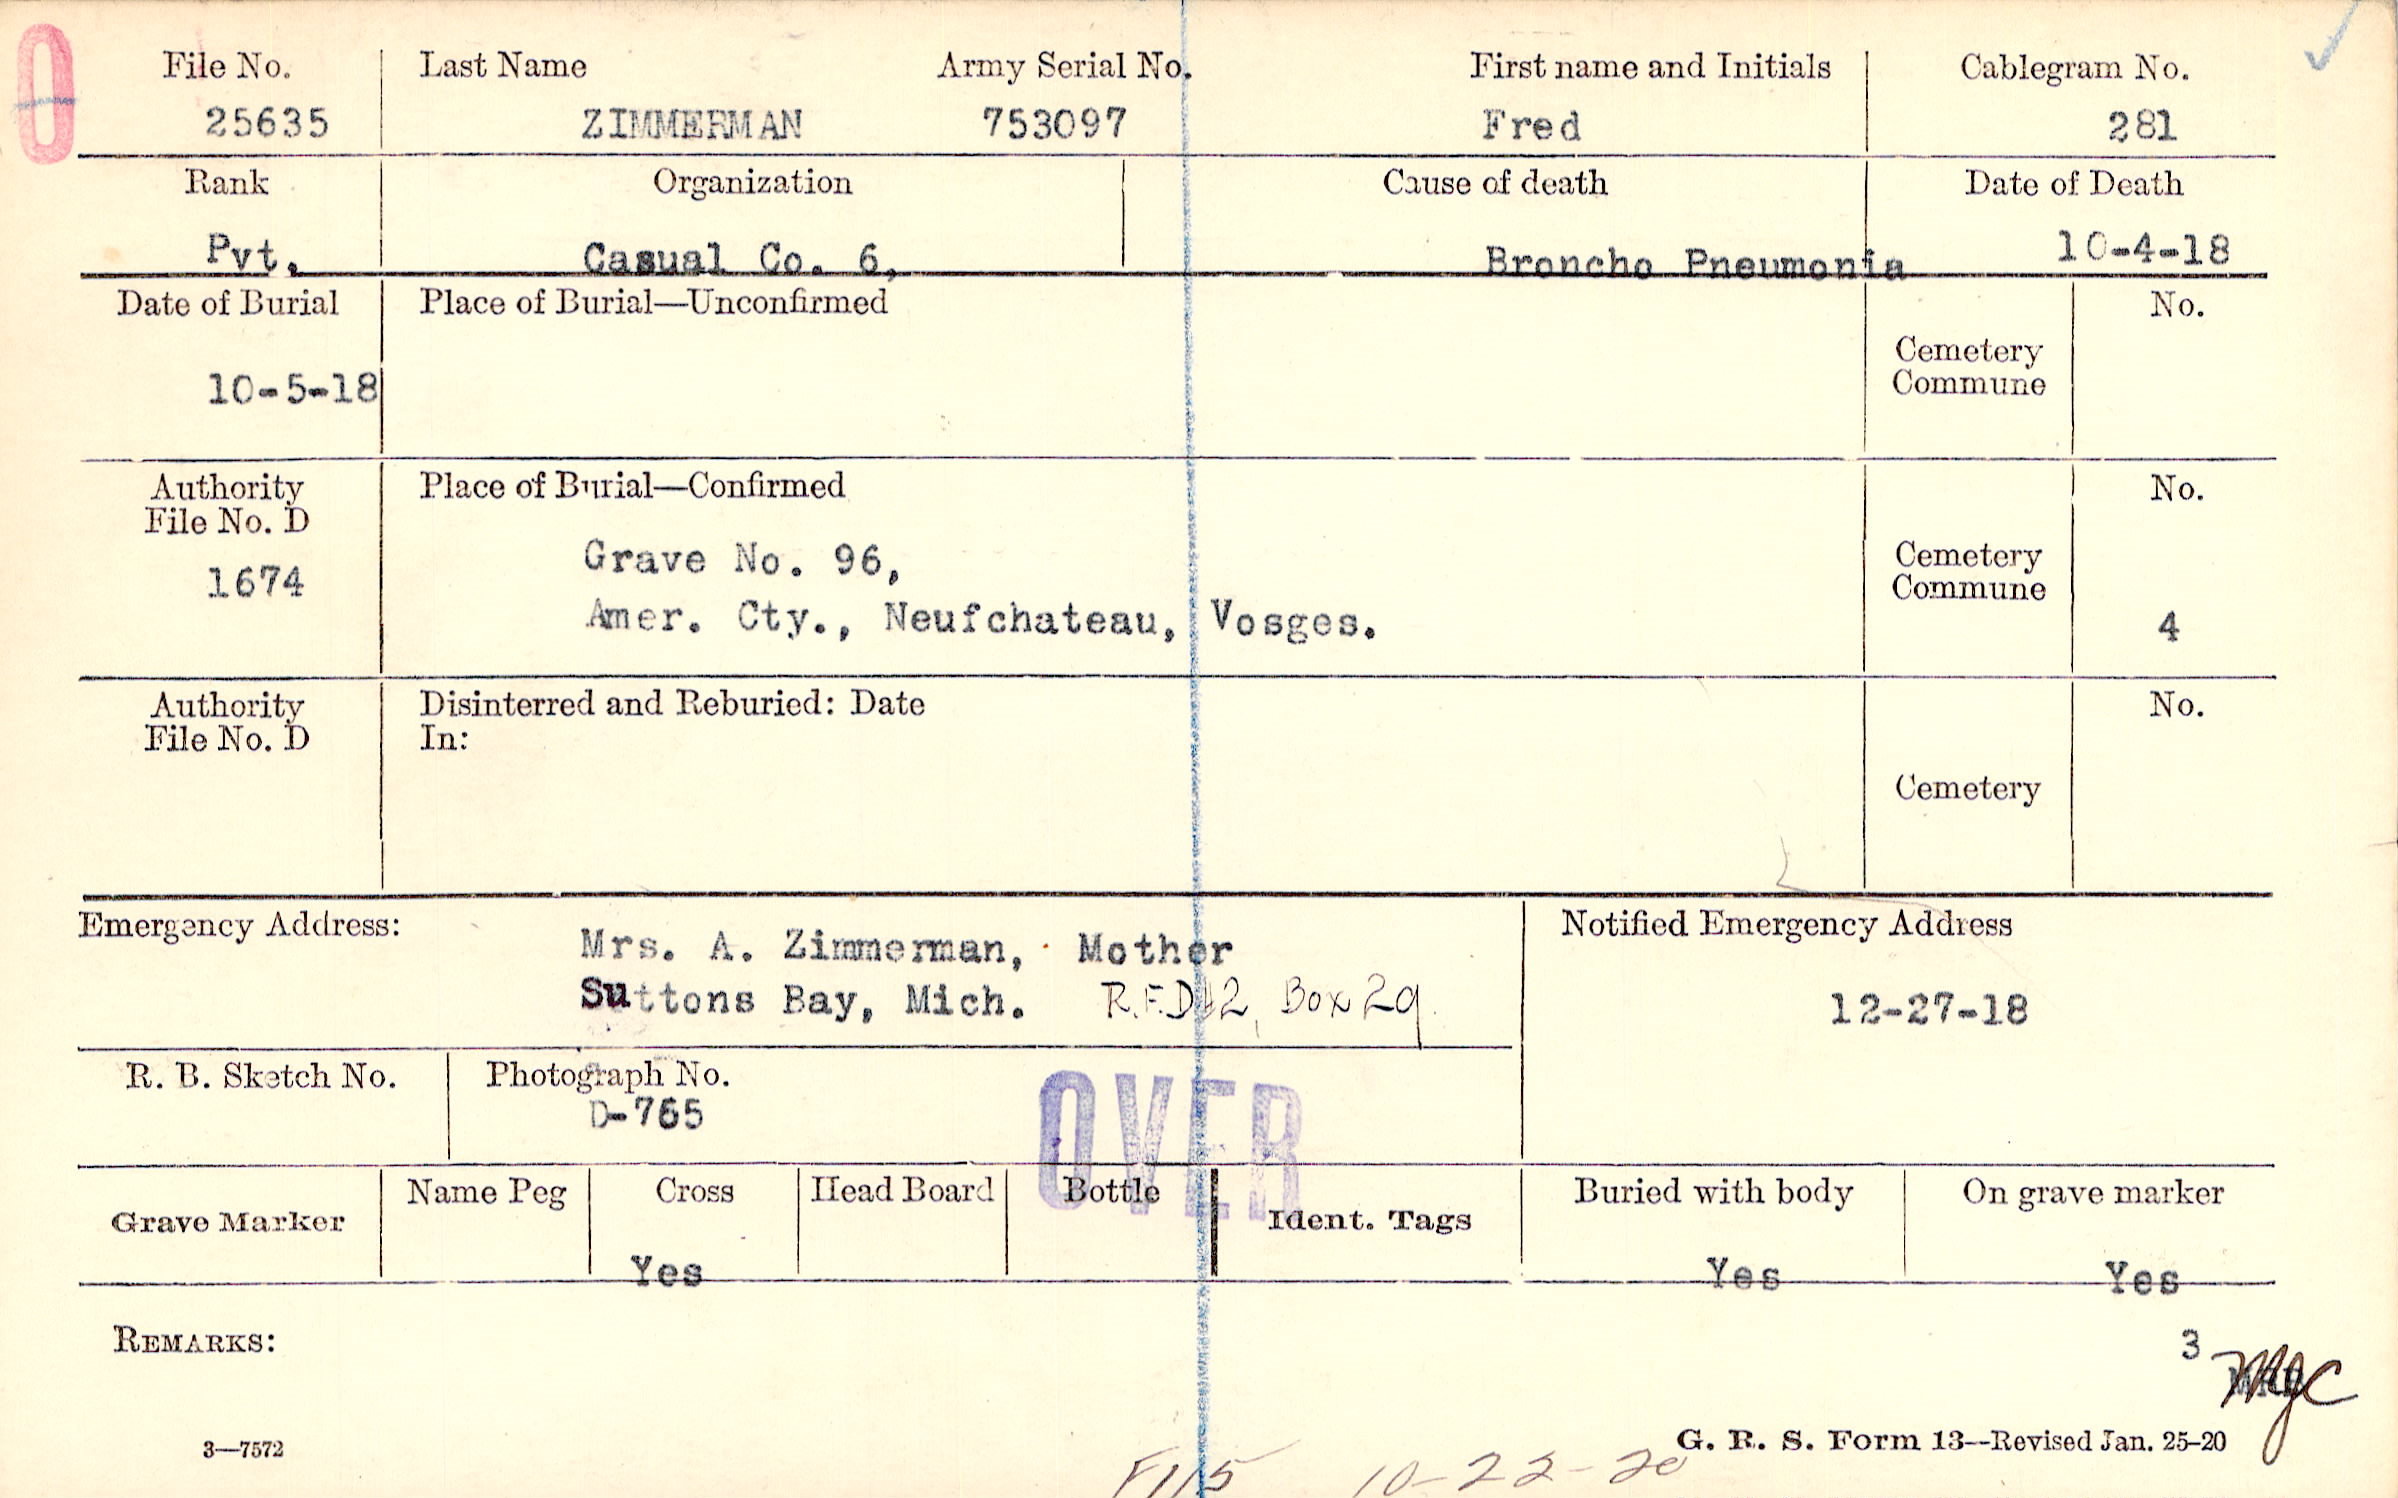 O
File No. Last Name Army Serial No. First name and Initials Cablegram No.
25635 ZIMMERMAN 753097 Fred 281
Rank Organization Cause of death Date of Death
Pvt. Casual Co. 6, Broncho Pneumonia 10-4-18
Date of Burial Place of Burial—Unconfirmed No.
Cemetery
Commune
10-5-18
Authority Place of Burial—Confirmed No.
File No. D
1674
Grave No. 96,
Amer. Cty., Neufchateau, Vosges.
Cemetery
Commune
4
Authority Disinterred and Reburied: Date No.
File No. D In:
Cemetery
Emergency Address: Notified Emergency Address
Mrs. A. Zimmerman, Mother
Suttons Bay, Mich. R.F.D#2, Box 29.
12-27-18
R. B. Sketch No. Photograph No.
D-765
OVER
Grave Marker Name Peg Cross Head Board Bottle Ident. Tags Buried with body On grave marker
Yes Yes Yes
REMARKS:
3
3—7572 G. R. S. Form 13—Revised Jan. 25-20
10-22-20